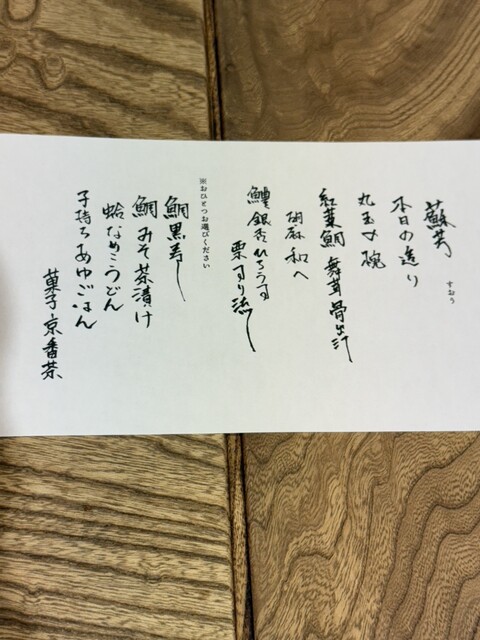 蘇芳
すおう
本日の造り
紅葉鯛 舞茸骨出汁
胡麻和へ
鱧銀杏ひろうす
栗すり流し
※おひとつお選びください
鯛黒寿し
鯛みそ茶漬け
蛤なめこうどん
子持ちあゆごはん
菓子 京番茶